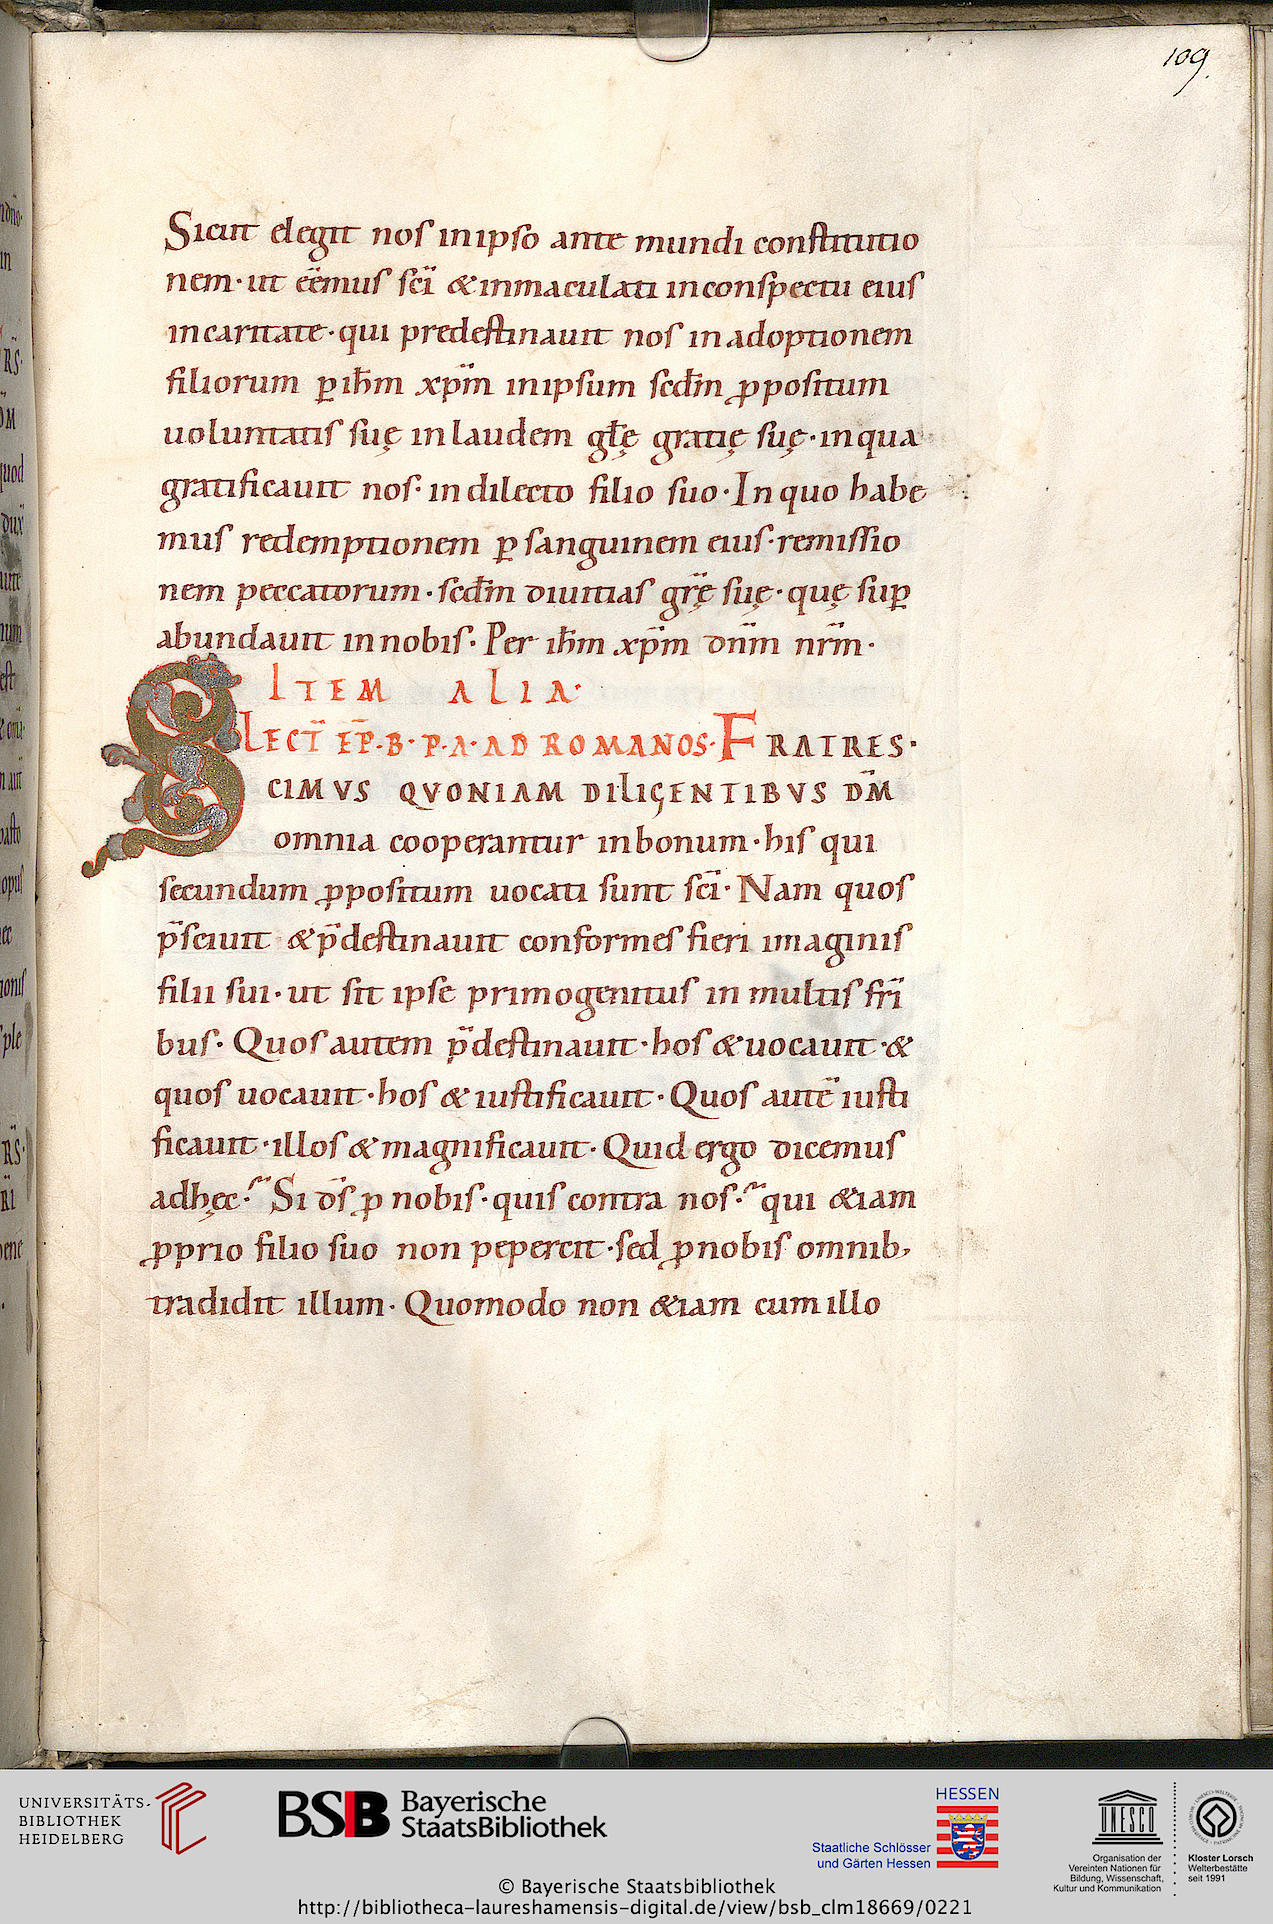 109.
Sicut elegit nos in ipso ante mundi constitutio
nem · ut eēmus sc̄i & inmaculati in conspectu eius
in caritate · qui predestinauit nos in adoptionem
filiorum ꝑ ih̄m xp̄m in ipsum scd̄m ꝓpositum
uoluntatis suę in laudem gl̄ę gratię suę · in qua
gratificauit nos · in dilecto filio suo · In quo habe
mus redemptionem ꝑ sanguinem eius · remissio
nem peccatorum · scd̄m diuitias gr̄ę suę · quę suꝑ
abundauit in nobis · Per ih̄m xp̄m dn̄m nr̄m ·
ITEM ALIA ·
LECT̄ EP̄ · B · P · A · AD ROMANOS · FRATRES ·
SCIMUS QVONIAM DILIGENTIBVS DM̄
omnia cooperantur in bonum · his qui
secundum ꝓpositum uocati sunt sc̄i · Nam quos
p̄sciuit & p̄destinauit conformes fieri imaginis
filii sui · ut sit ipse primogenitus in multis fr̄i
bus · Quos autem p̄destinauit · hos & uocauit · &
quos uocauit · hos & iustificauit · Quos autē iusti
ficauit · illos & magnificauit · Quid ergo dicemus
ad hęc · Si d̄s ꝓ nobis · quis contra nos · qui &iam
ꝓprio filio suo non pepercit · sed ꝓ nobis omnib;
tradidit illum · Quomodo non &iam cum illo
UNIVERSITÄTS-
BIBLIOTHEK
HEIDELBERG
BSB Bayerische
StaatsBibliothek
HESSEN
Staatliche Schlösser
und Gärten Hessen
UNESCO
Organisation der
Vereinten Nationen für
Bildung, Wissenschaft,
Kultur und Kommunikation
Kloster Lorsch
Welterbestätte
seit 1991
© Bayerische Staatsbibliothek
http://bibliotheca-laureshamensis-digital.de/view/bsb_clm18669/0221